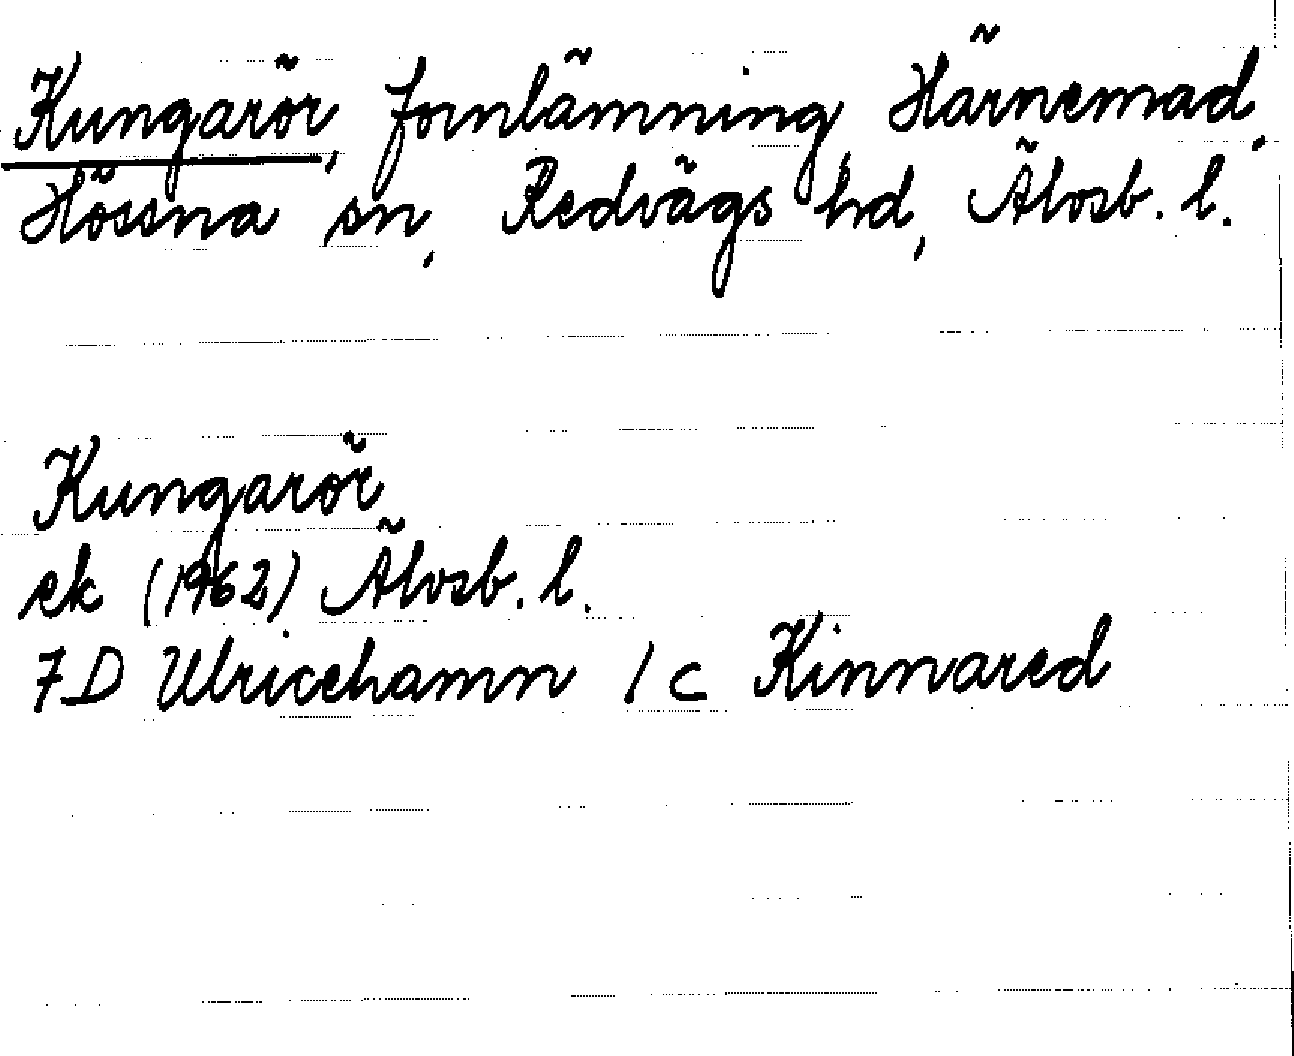 Kungarör, fornlämning, Härnemad,
Hössna sn, Redvägs hd, Älvsb. l.
Kungarör
ek (1962) Älvsb. l.
7D Ulricehamn 1 c Kinnared